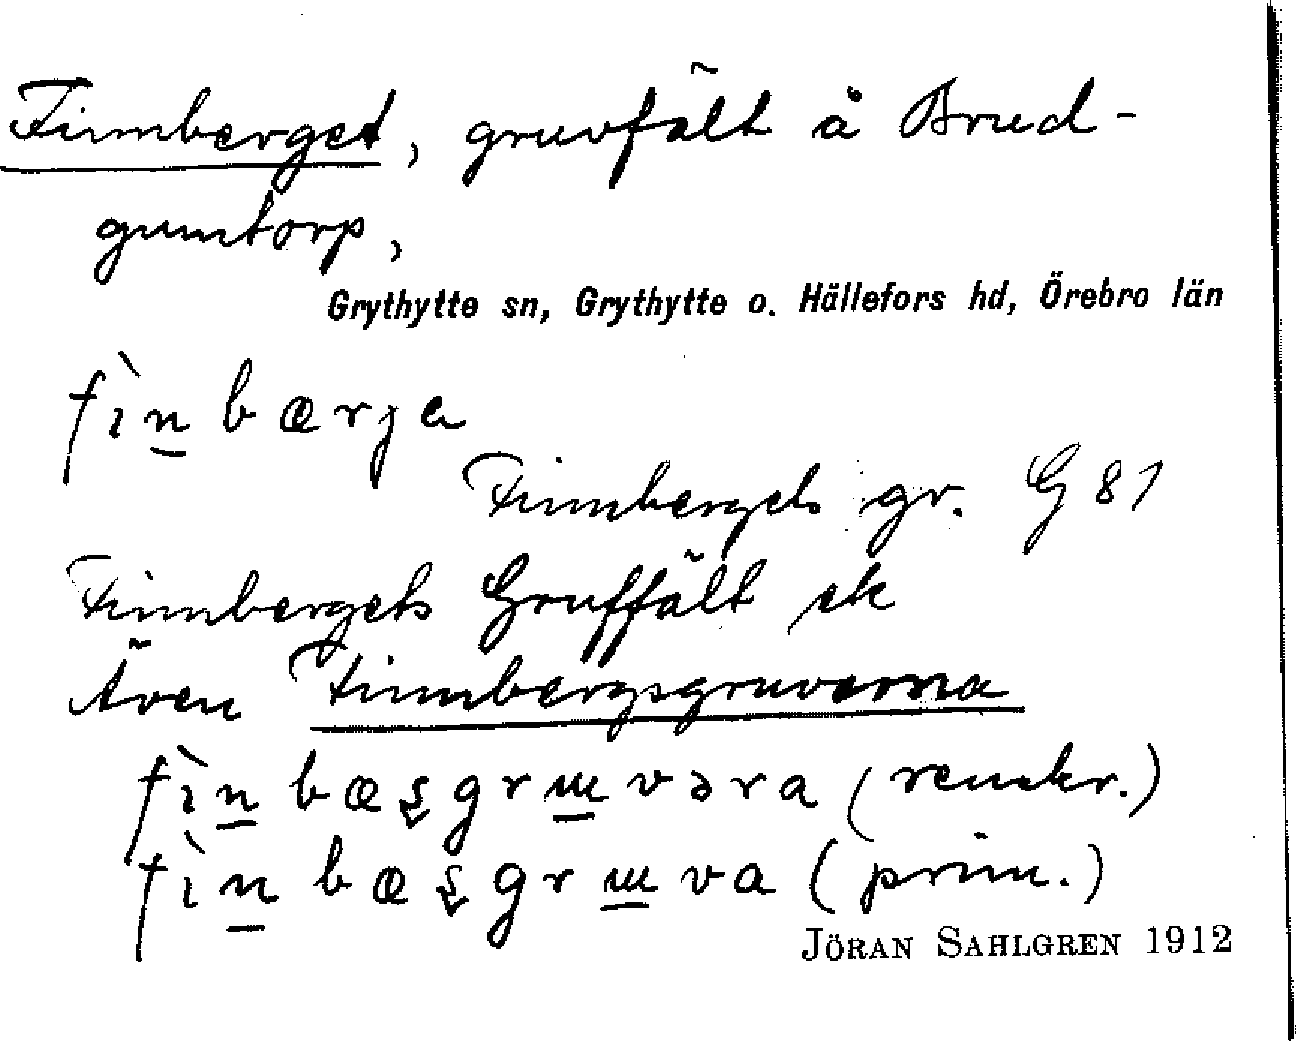 Finnberget, gruvfält å Brud-
gumtorp,
Grythytte sn, Grythytte o. Hällefors hd, Örebro län
fìn bærja
Finnbergets gr. G 81
Finnbergets Gruffält ek
Även Finnbergsgruvorna
fìn bæʂgrɯvəra (renskr.)
fìn bæʂgrɯva (prim.)
JÖRAN SAHLGREN 1912